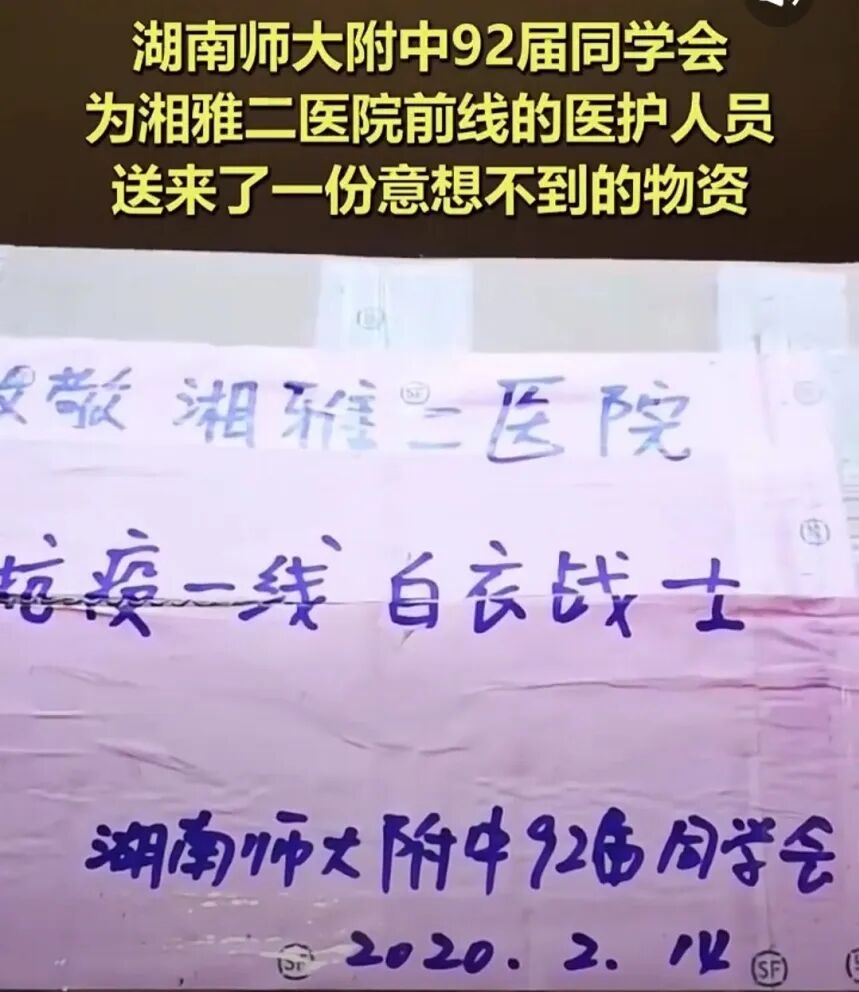 湖南师大附中92届同学会
为湘雅二医院前线的医护人员
送来了一份意想不到的物资
致敬 湘雅二医院
抗疫一线 白衣战士
湖南师大附中92届同学会
SF 2020.2.14 SF